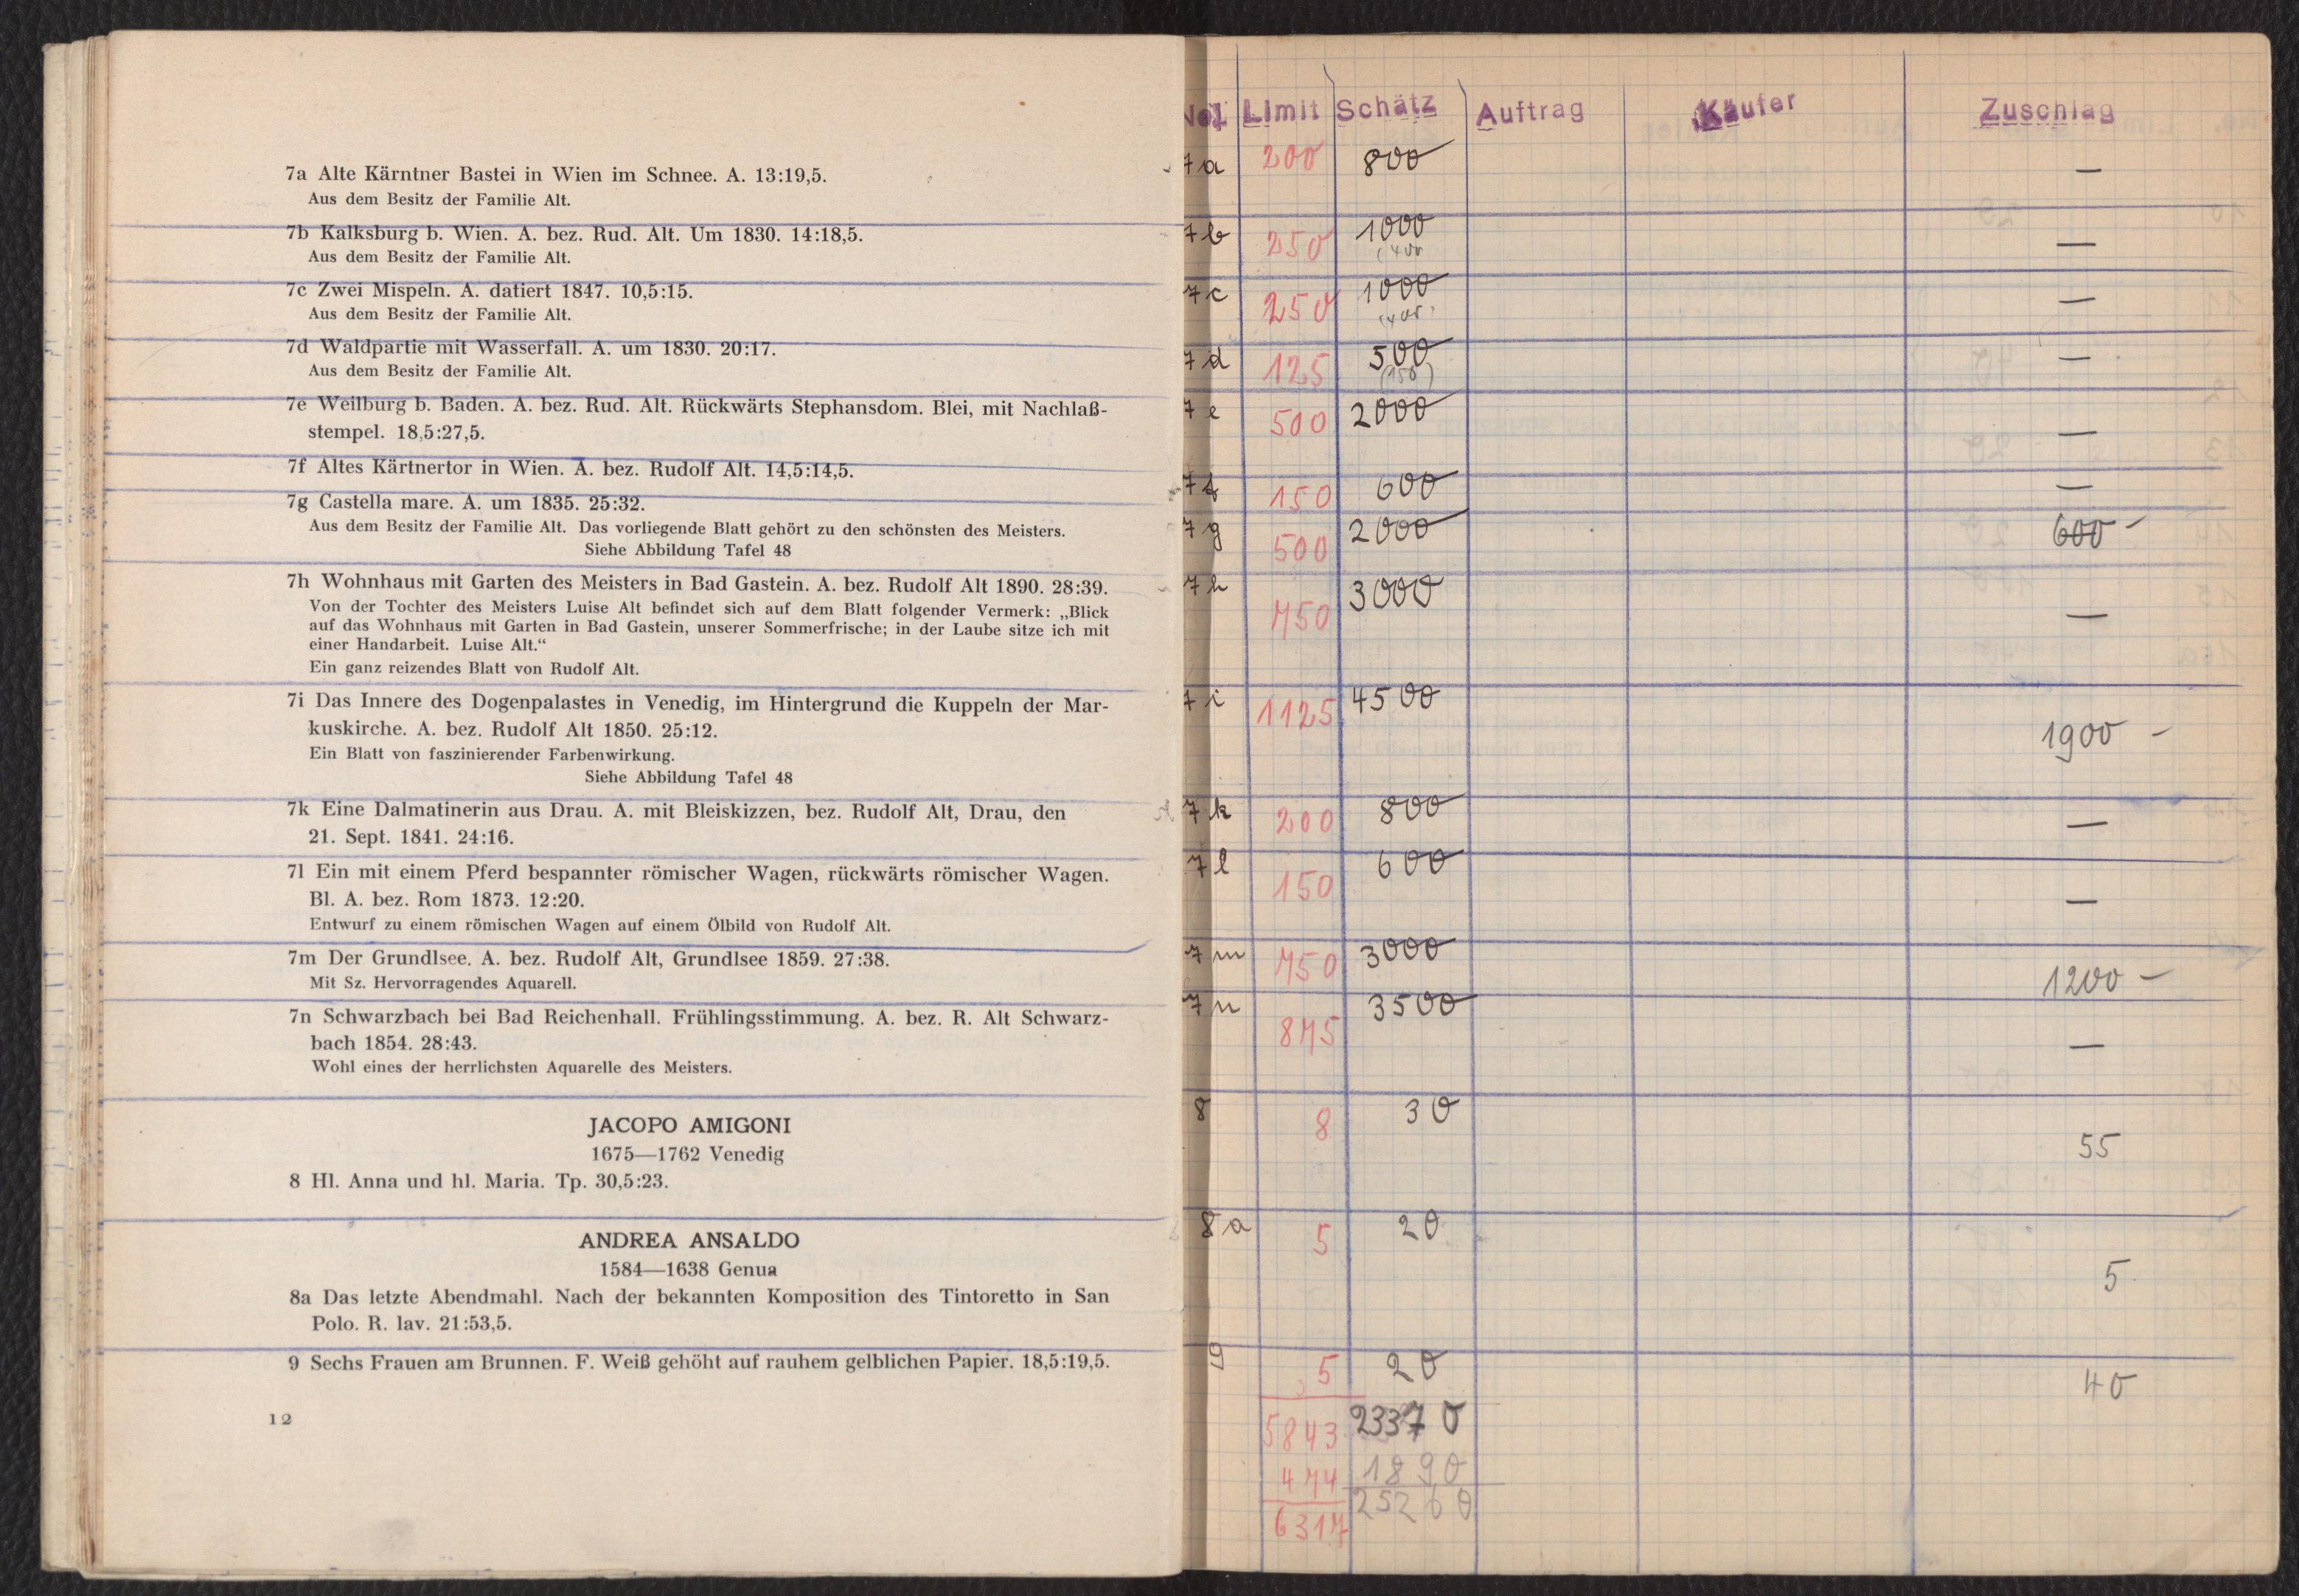 7a Alte Kärntner Bastei in Wien im Schnee. A. 13:19,5.
Aus dem Besitz der Familie Alt.
7b Kalksburg b. Wien. A. bez. Rud. Alt. Um 1830. 14:18,5.
Aus dem Besitz der Familie Alt.
7c Zwei Mispeln. A. datiert 1847. 10,5:15.
Aus dem Besitz der Familie Alt.
7d Waldpartie mit Wasserfall. A. um 1830. 20:17.
Aus dem Besitz der Familie Alt.
7e Weilburg b. Baden. A. bez. Rud. Alt. Rückwärts Stephansdom. Blei, mit Nachlaß-
stempel. 18,5:27,5.
7f Altes Kärtnertor in Wien. A. bez. Rudolf Alt. 14,5:14,5.
7g Castella mare. A. um 1835. 25:32.
Aus dem Besitz der Familie Alt. Das vorliegende Blatt gehört zu den schönsten des Meisters.
Siehe Abbildung Tafel 48
7h Wohnhaus mit Garten des Meisters in Bad Gastein. A. bez. Rudolf Alt 1890. 28:39.
Von der Tochter des Meisters Luise Alt befindet sich auf dem Blatt folgender Vermerk: „Blick
auf das Wohnhaus mit Garten in Bad Gastein, unserer Sommerfrische; in der Laube sitze ich mit
einer Handarbeit. Luise Alt.“
Ein ganz reizendes Blatt von Rudolf Alt.
7i Das Innere des Dogenpalastes in Venedig, im Hintergrund die Kuppeln der Mar-
kuskirche. A. bez. Rudolf Alt 1850. 25:12.
Ein Blatt von faszinierender Farbenwirkung.
Siehe Abbildung Tafel 48
7k Eine Dalmatinerin aus Drau. A. mit Bleiskizzen, bez. Rudolf Alt, Drau, den
21. Sept. 1841. 24:16.
7l Ein mit einem Pferd bespannter römischer Wagen, rückwärts römischer Wagen.
Bl. A. bez. Rom 1873. 12:20.
Entwurf zu einem römischen Wagen auf einem Ölbild von Rudolf Alt.
7m Der Grundlsee. A. bez. Rudolf Alt, Grundlsee 1859. 27:38.
Mit Sz. Hervorragendes Aquarell.
7n Schwarzbach bei Bad Reichenhall. Frühlingsstimmung. A. bez. R. Alt Schwarz-
bach 1854. 28:43.
Wohl eines der herrlichsten Aquarelle des Meisters.
JACOPO AMIGONI
1675—1762 Venedig
8 Hl. Anna und hl. Maria. Tp. 30,5:23.
ANDREA ANSALDO
1584—1638 Genua
8a Das letzte Abendmahl. Nach der bekannten Komposition des Tintoretto in San
Polo. R. lav. 21:53,5.
9 Sechs Frauen am Brunnen. F. Weiß gehöht auf rauhem gelblichen Papier. 18,5:19,5.
12
Limit Schätz Auftrag Käufer Zuschlag
7a 200 800 —
7b 250 1000 —
(400
7c 250 1000 —
7d 125 500 —
(150)
7e 500 2000 —
7f 150 600 —
7g 500 2000 600 -
7h 750 3000 —
7i 1125 4500 1900 -
7k 200 800 —
7l 150 600 —
7m 750 3000 1200 -
7n 875 3500 —
8 8 30 55
8a 5 20 5
9 5 20 40
5843 23370
474 1890
6317 25260